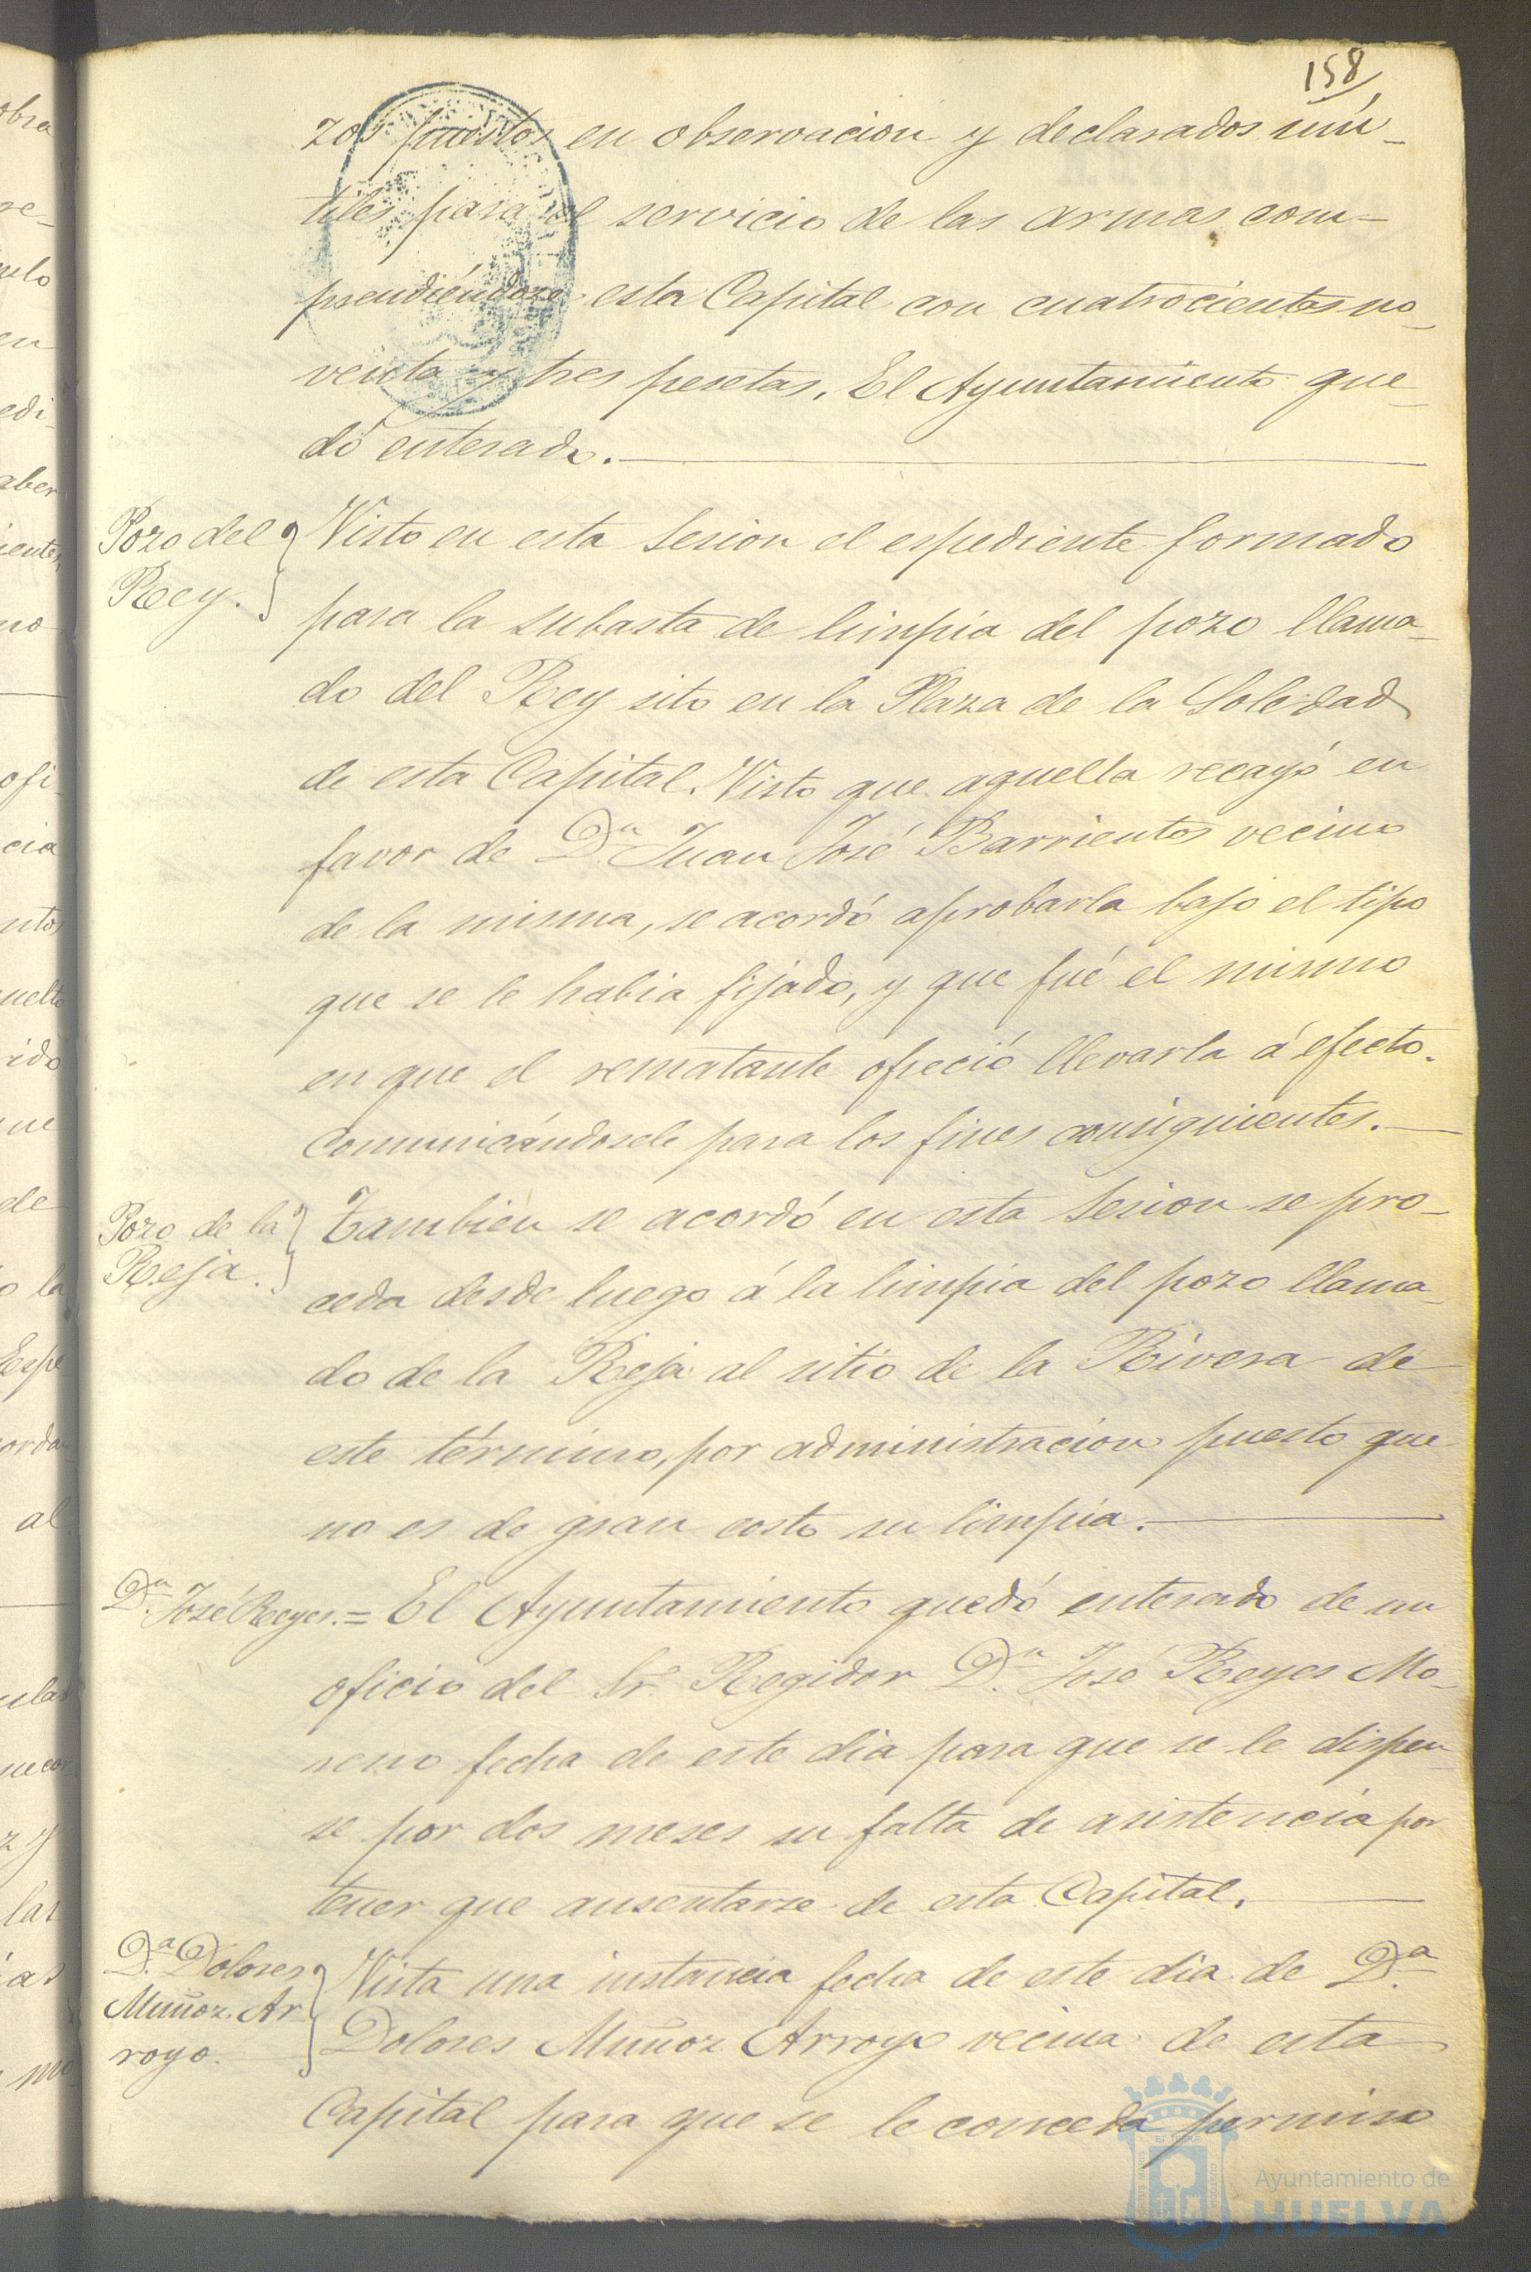 158
zos puestos en observacion y declarados inú-
tiles para el servicio de las armas com-
prendiéndose esta Capital con cuatrocientas no-
venta y tres pesetas. El Ayuntamiento que-
dó enterado.
Pozo del
Rey.
Visto en esta Sesion el espediente formado
para la subasta de limpia del pozo llama-
do del Rey sito en la Plaza de la Soledad
de esta Capital. Visto que aquella recayó en
favor de D.n Juan José Barrientos vecino
de la misma, se acordó aprobarla bajo el tipo
que se le habia fijado, y que fué el mismo
en que el rematante ofreció llevarla á efecto.
Comunicándosele para los fines consiguientes.
Pozo de la
Reja.
Tambien se acordó en esta Sesion se pro-
ceda desde luego á la limpia del pozo llama-
do de la Reja al sitio de la Rivera de
este término, por administracion puesto que
no es de gran costo su limpia.
D.n José Reyes. = El Ayuntamiento quedó enterado de un
oficio del Sr. Regidor D.n José Reyes Mo-
reno fecha de este dia para que se le dispen-
se por dos meses su falta de asistencia por
tener que ausentarse de esta Capital.
D.a Dolores
Muñoz Ar-
royo.
Vista una instancia fecha de este dia de D.a
Dolores Muñoz Arroyo vecina de esta
Capital para que se le conceda permiso
Ayuntamiento de
HUELVA